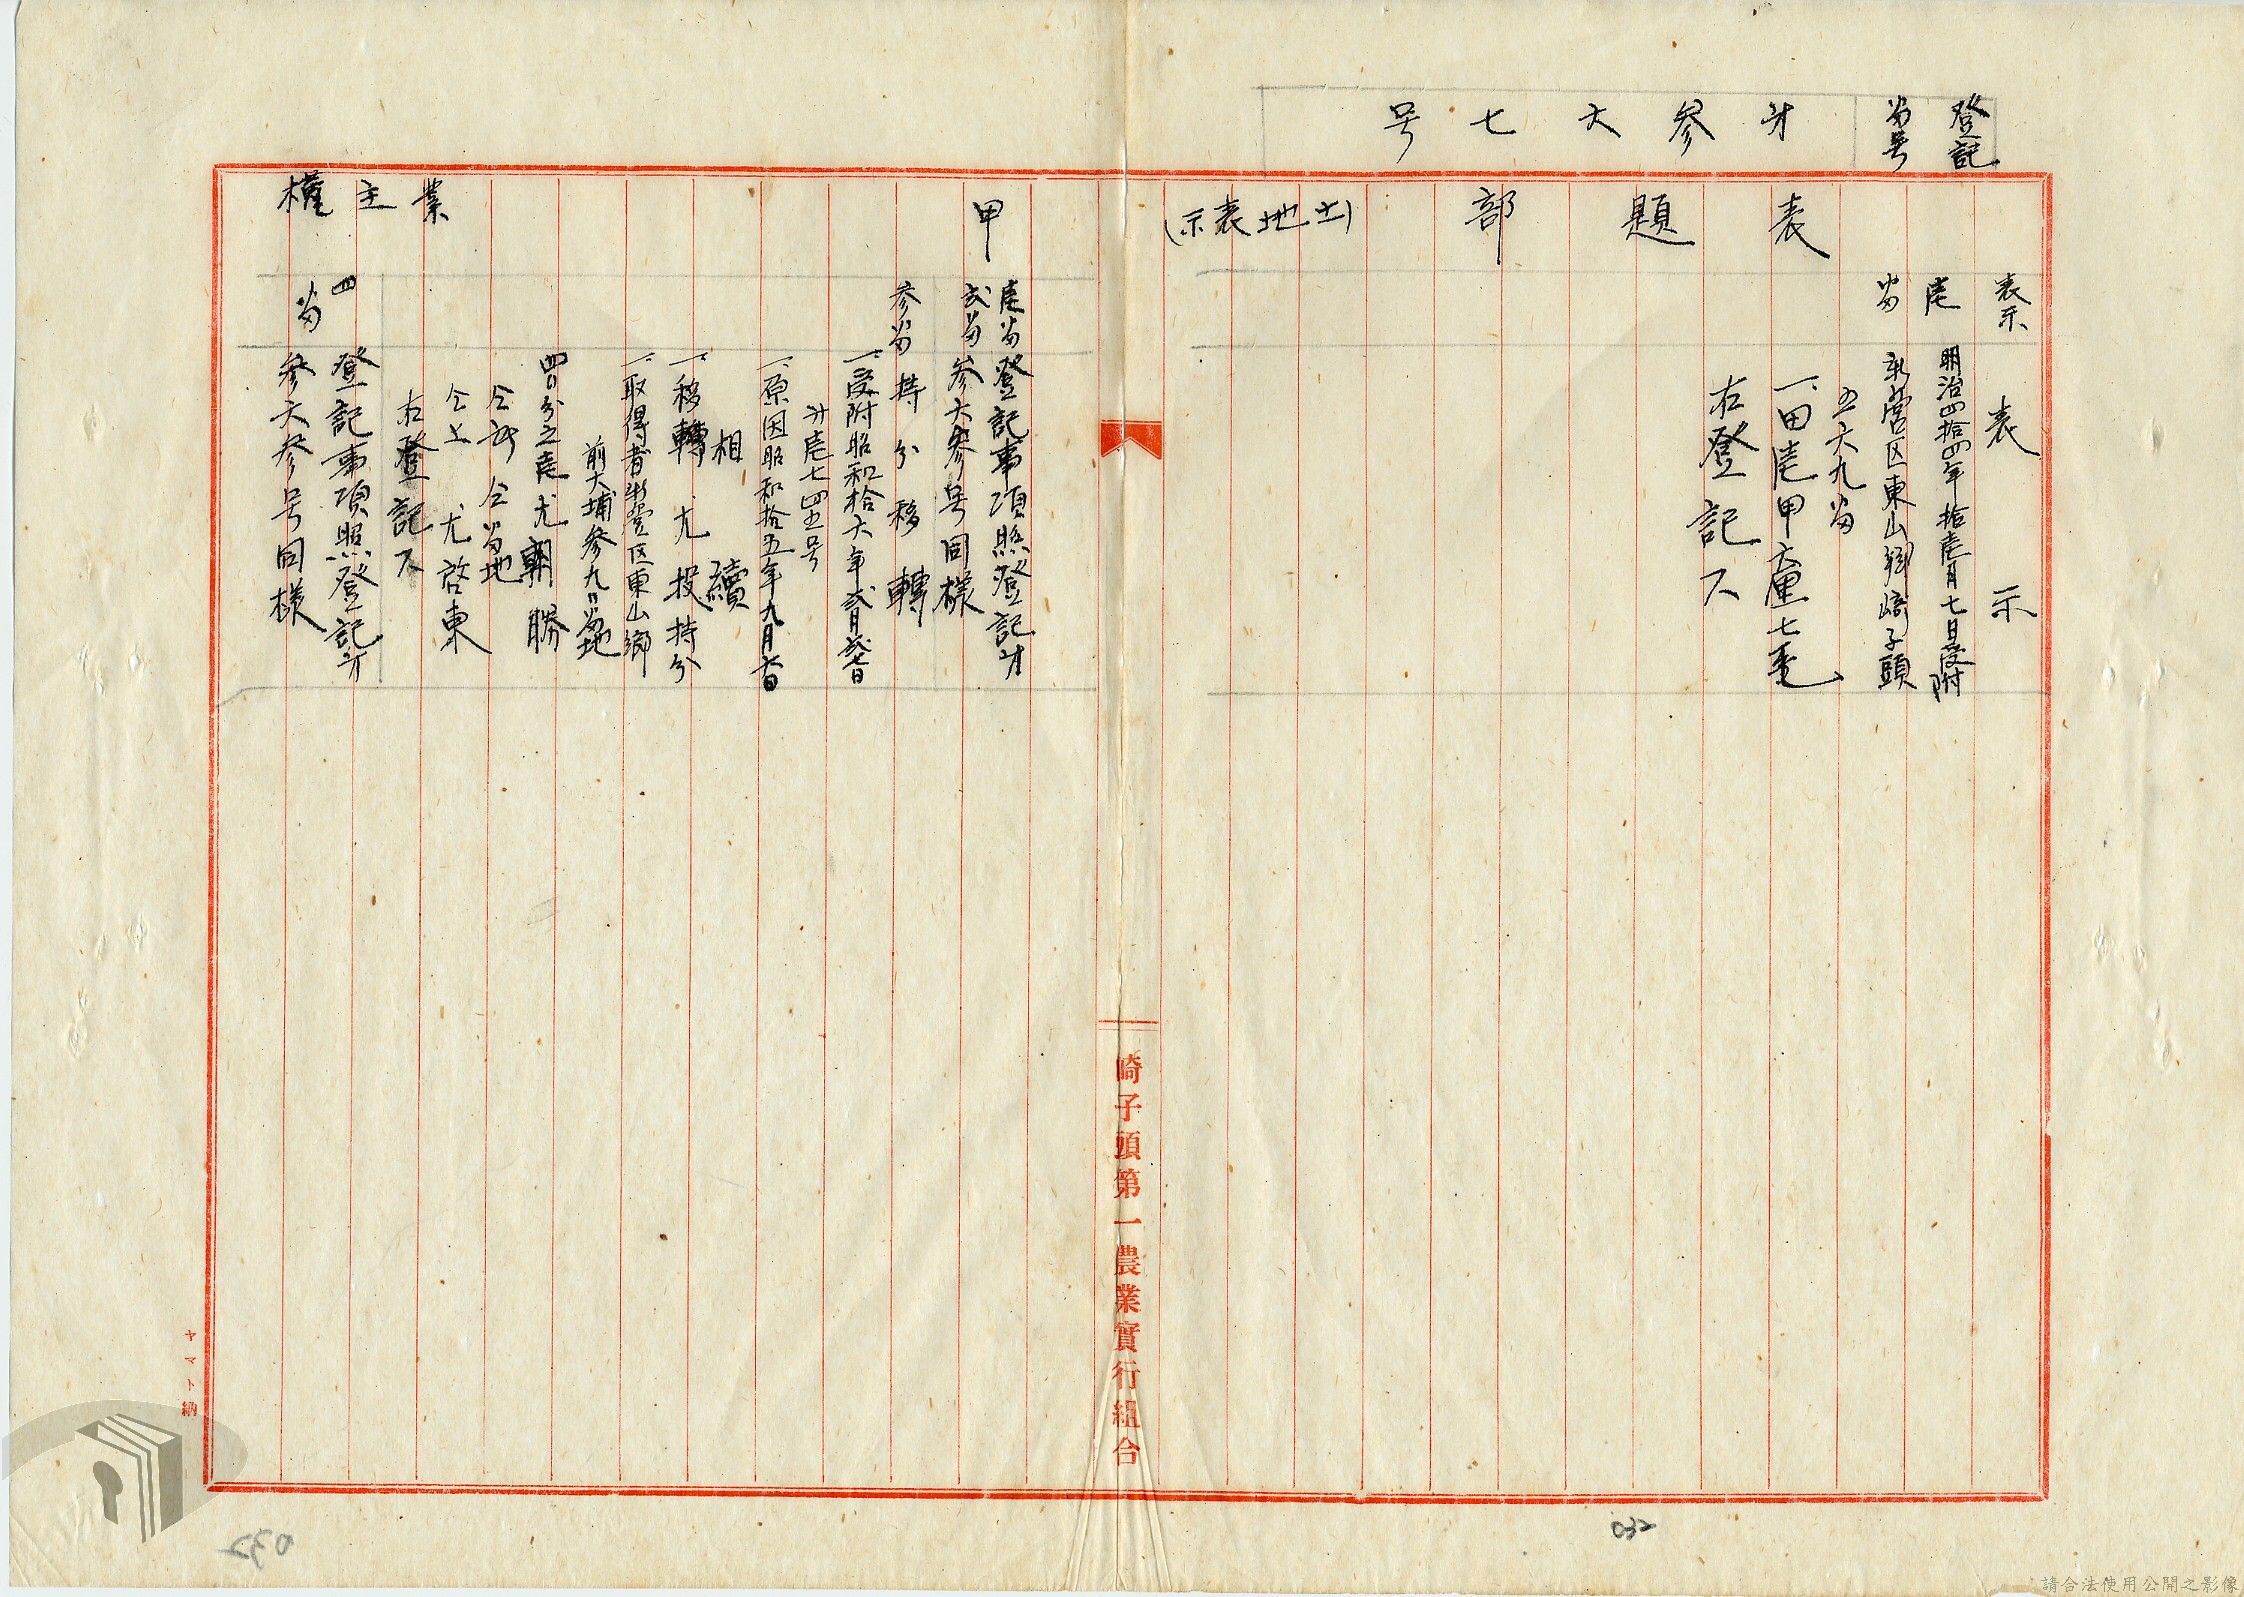 登記
番号
才参六七号
表題部
(土地表示)
表示
表示
壱
番
明治四拾四年拾壱月七日受附
新營区東山鄉崎子頭
五六九番
一、田壱甲六厘七毛
右登記ス
甲
壱番
弍番
登記事項照登記才
参六参号同様
参番
持分移轉
一、受附昭和拾六年弍月弍七日
才壱七四五号
一、原因昭和拾五年九月六日
相續
一、移轉尤投持分
一、取得者新營区東山鄉
前大埔参九〃番地
四〃分之壱尤朝勝
仝所仝番地
仝上尤啓東
右登記ス
業主權
四
番
登記事項照登記才
参六参号同様
崎子頭第一農業實行組合
ヤマト納
032
032
請合法使用公開之影像